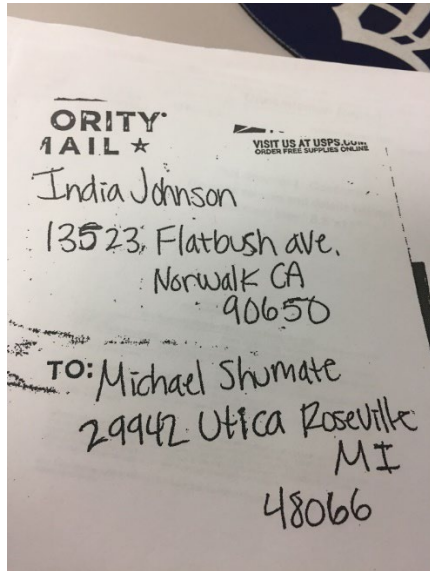 ORITY
MAIL ★
VISIT US AT USPS.COM
ORDER FREE SUPPLIES ONLINE
India Johnson
13523 Flatbush ave.
Norwalk CA
90650
TO: Michael Shumate
29942 Utica Roseville
MI
48066